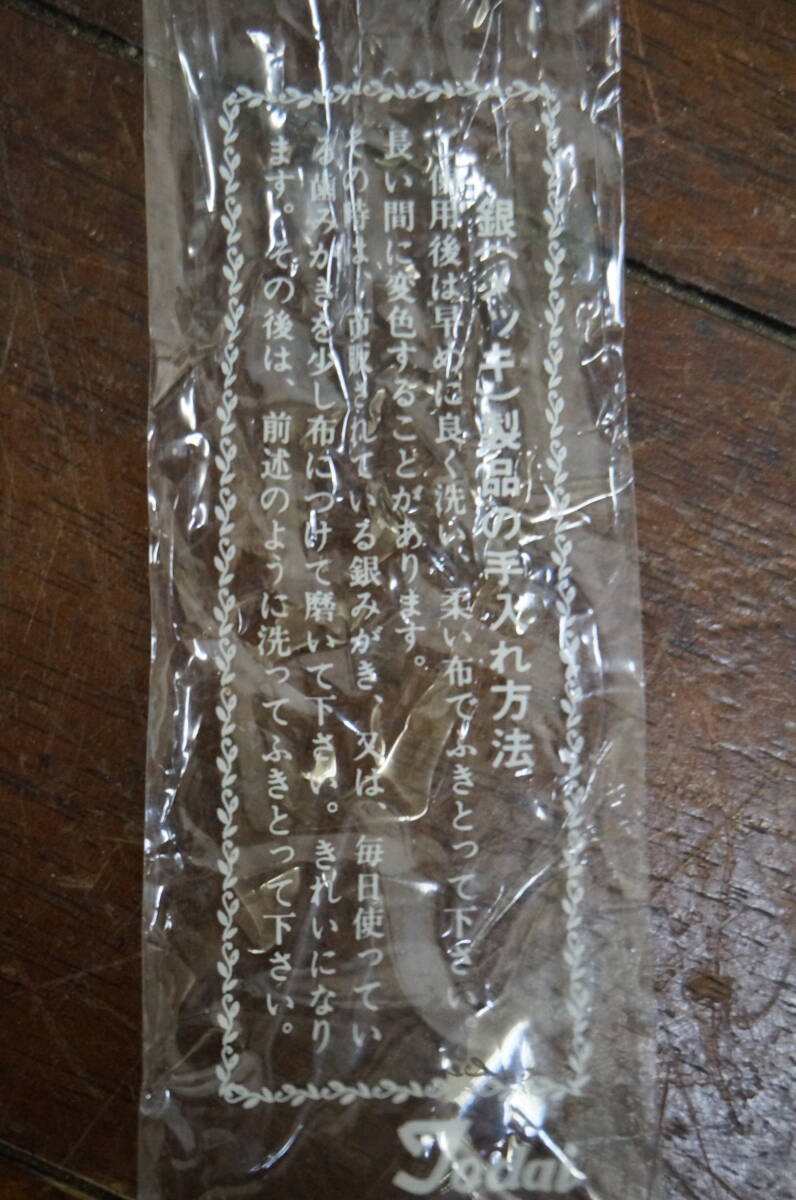 銀(メッキ)製品の手入れ方法
使用後は早めに良く洗い、柔い布でふきとって下さい。
長い間に変色することがあります。
その時は、市販されている銀みがき、又は、毎日使ってい
る歯みがきを少し布につけて磨いて下さい。きれいになり
ます。その後は、前述のように洗ってふきとって下さい。
Todai